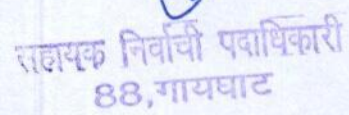 सहायक निर्वाची पदाधिकारी
88,गायघाट